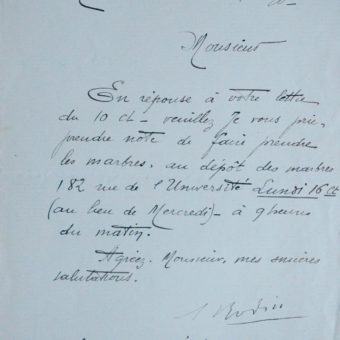 Monsieur
En réponse à votre lettre
du 10 ct – veuillez je vous prie,
prendre note de faire prendre
les marbres. au dépôt des marbres
182 rue de l'Université Lundi 16 ct
(au lieu de Mercredi) – à 9 heures
du matin.
Agréez. Monsieur, mes sincères
salutations.
Rodin